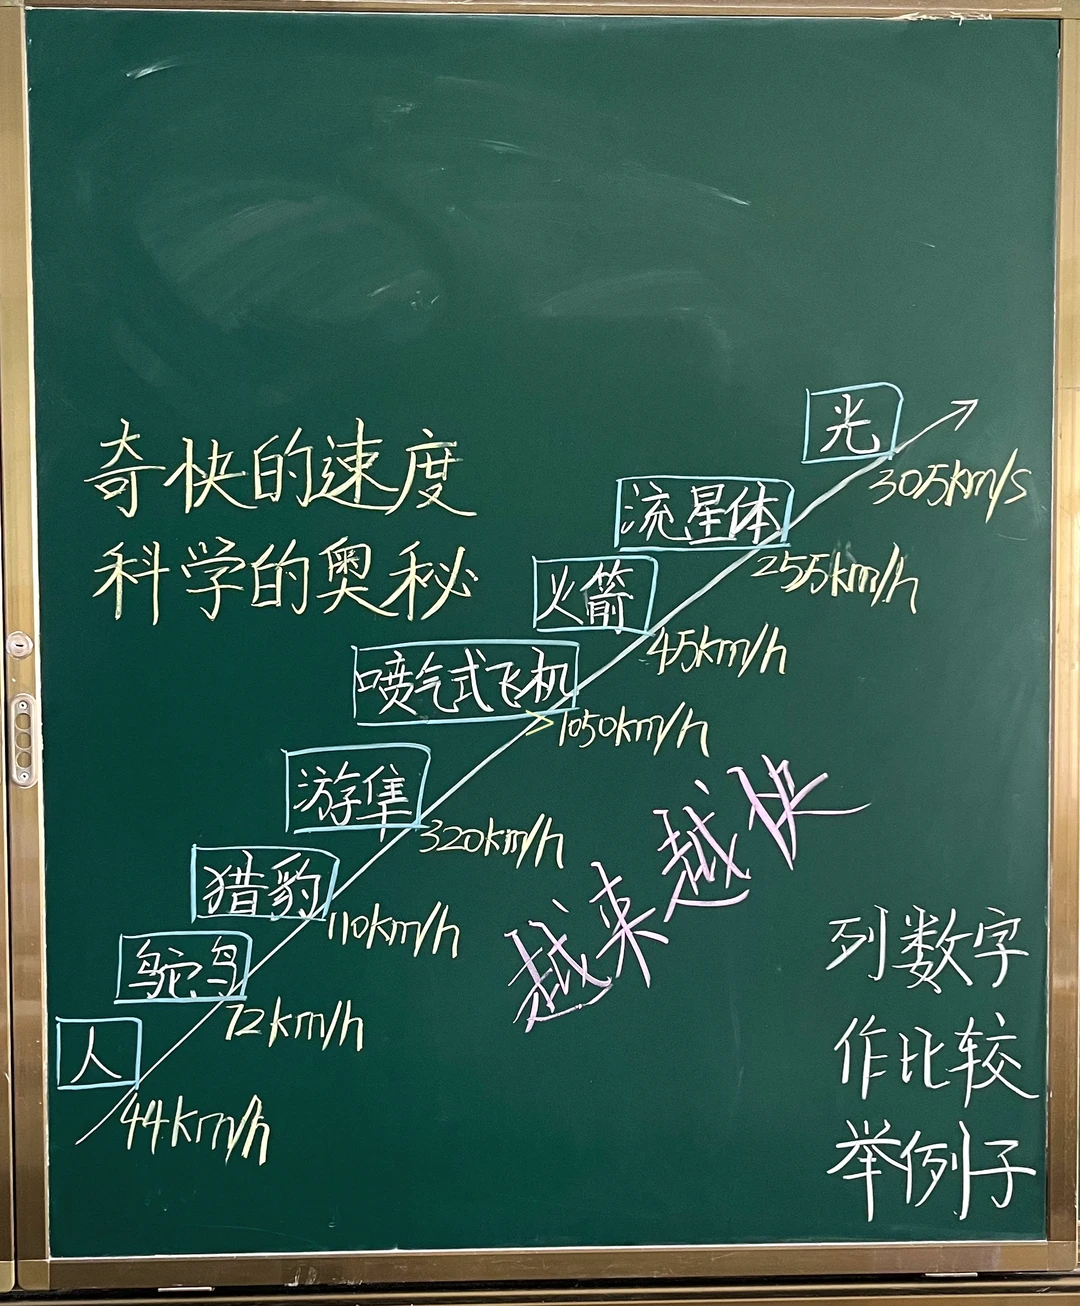 奇快的速度
科学的奥秘
光
305km/s
流星体
255km/h
火箭
45km/h
喷气式飞机
>1050km/h
游隼
320km/h
猎豹
110km/h
鸵鸟
72km/h
人
44km/h
越来越快
列数字
作比较
举例子